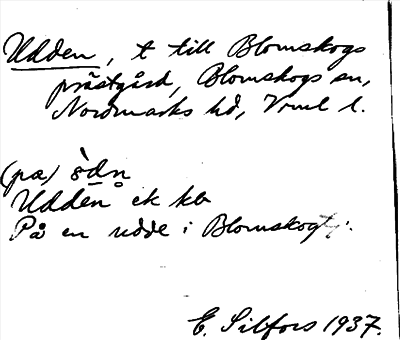 Udden, t till Blomskogs
prästgård, Blomskogs sn,
Nordmarks hd, Vrml l.
(pa) òdn
Udden ek kb
På en udde i Blomskog
E. Silfors 1937.